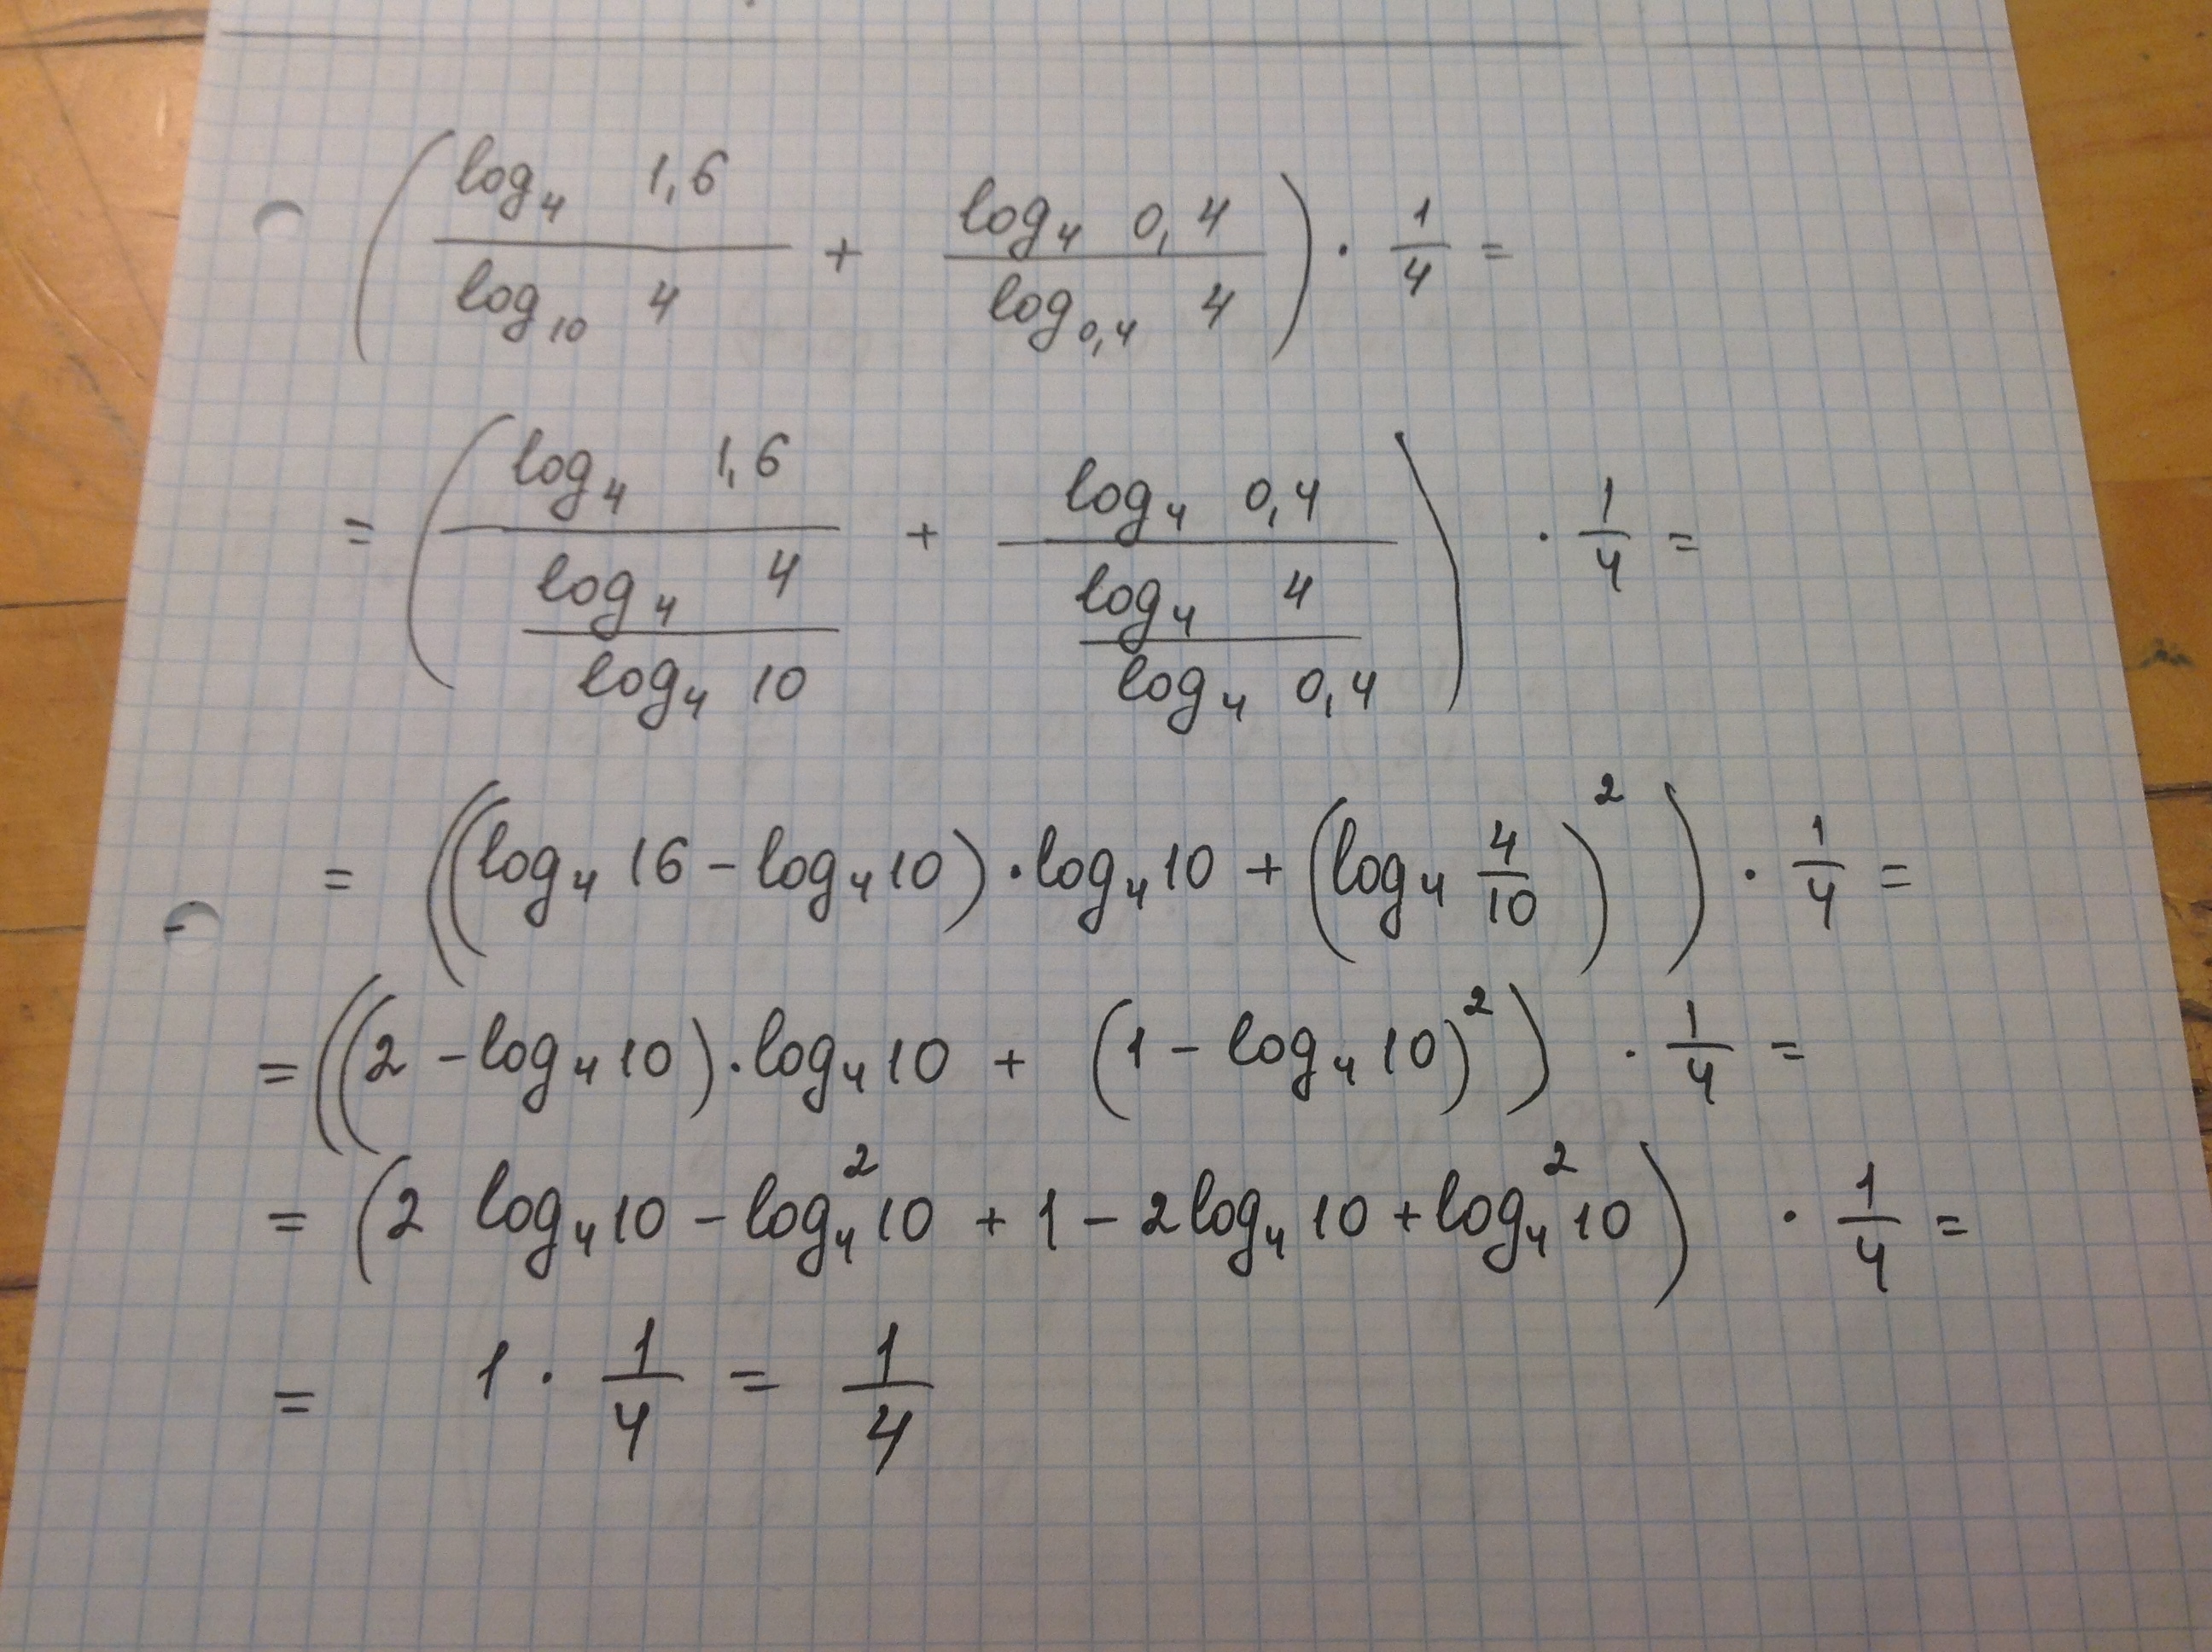 ( log₄ 1,6 / log₁₀ 4 + log₄ 0,4 / log₀,₄ 4 ) · 1/4 =
= ( log₄ 1,6 / (log₄ 4 / log₄ 10) + log₄ 0,4 / (log₄ 4 / log₄ 0,4) ) · 1/4 =
= ((log₄ 16 - log₄ 10) · log₄ 10 + (log₄ 4/10)²) · 1/4 =
= ((2 - log₄ 10) · log₄ 10 + (1 - log₄ 10)²) · 1/4 =
= (2 log₄ 10 - log₄² 10 + 1 - 2 log₄ 10 + log₄² 10) · 1/4 =
= 1 · 1/4 = 1/4